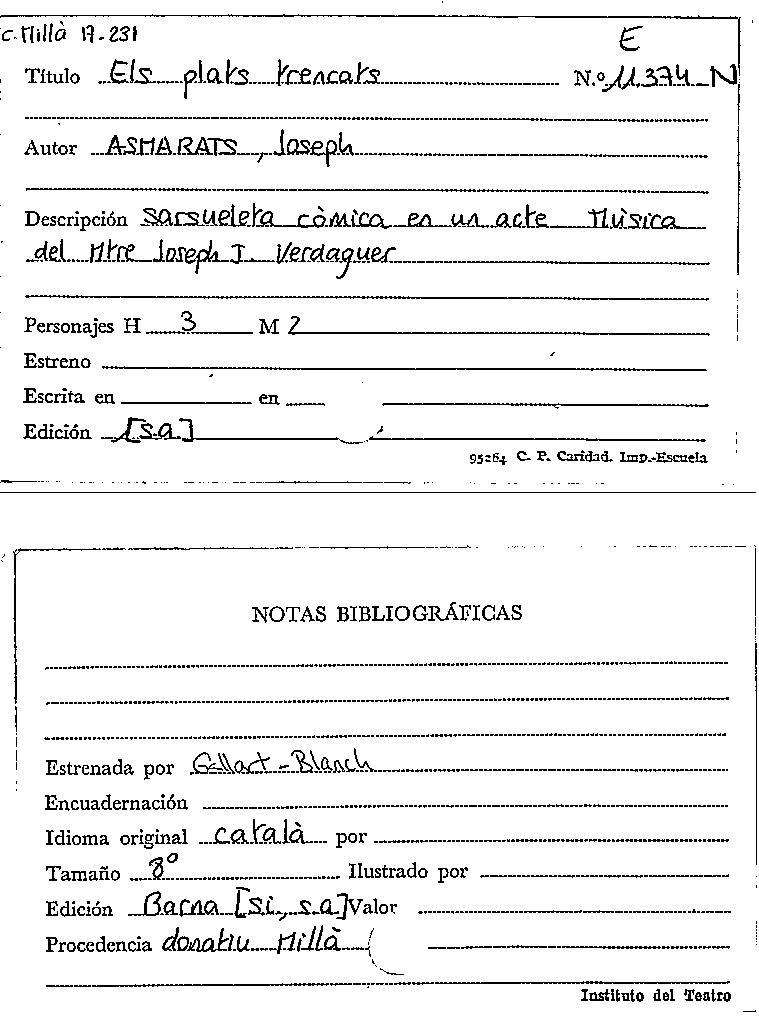 C. Millà 17-231
E
Título Els plats trencats N.º 11.374-N
Autor ASMARATS, Joseph
Descripción sarsueleta còmica en un acte Mùsica
del Mtre Joseph J. Verdaguer
Personajes H 3 M 2
Estreno
Escrita en en
Edición [s.a.]
95264 C. P. Caridad. Imp.-Escuela
NOTAS BIBLIOGRÁFICAS
Estrenada por Gallart-Blanch
Encuadernación
Idioma original català por
Tamaño 8º Ilustrado por
Edición Barna [S.i., s.a] Valor
Procedencia donatiu Millà
Instituto del Teatro